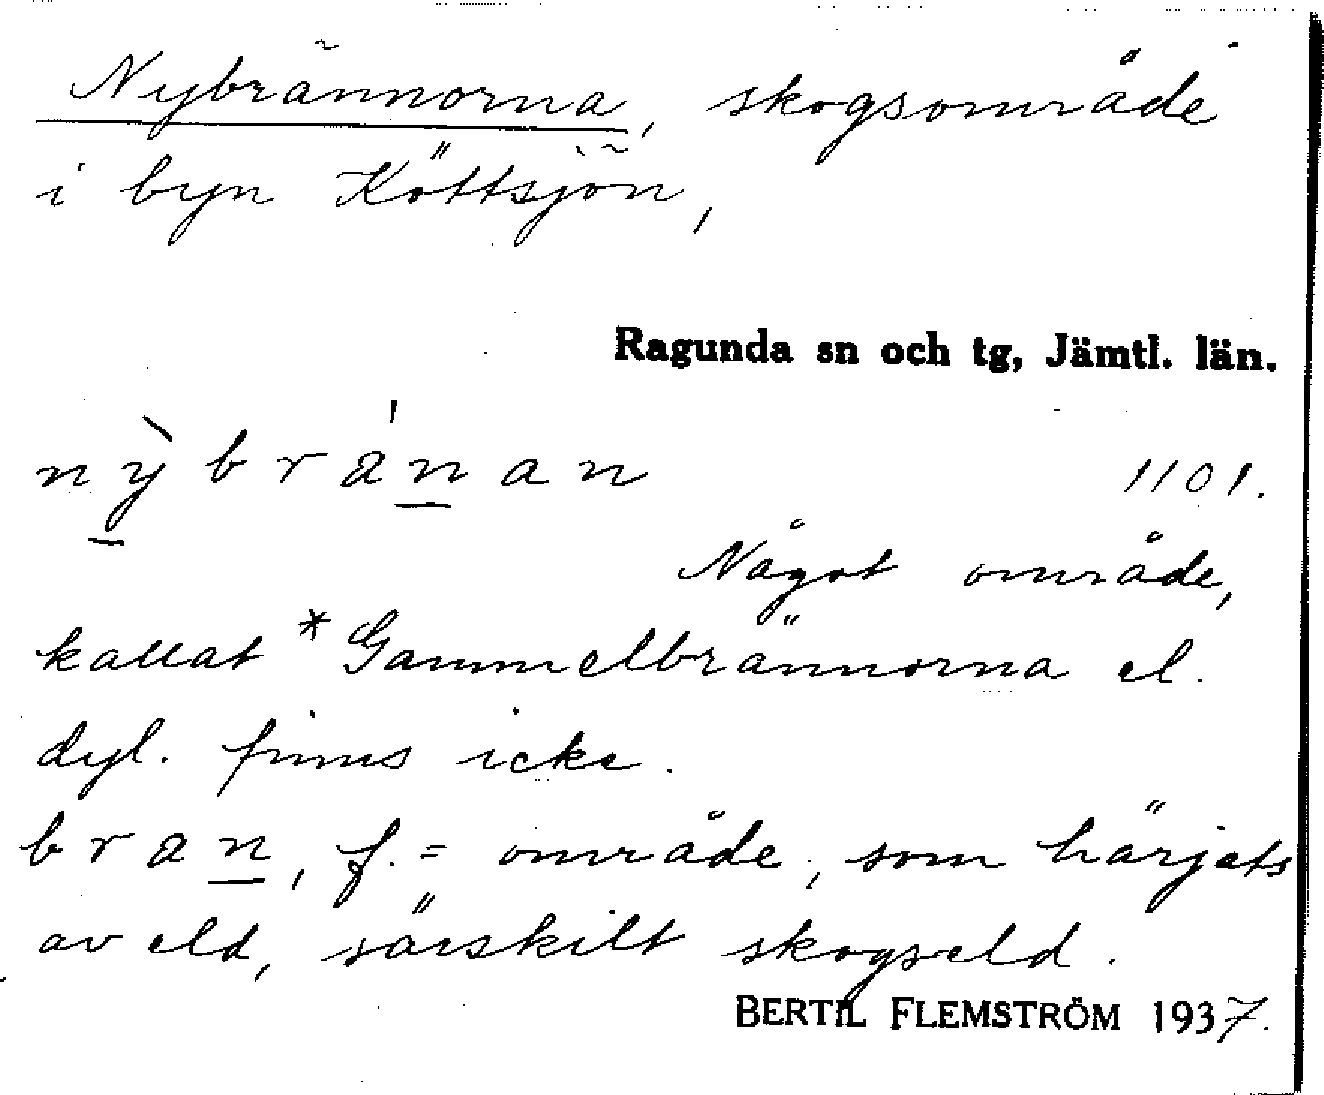 Nybrännorna, skogsområde
i byn Köttsjön,
Ragunda sn och tg, Jämtl. län.
nỳbránan 1101.
Något område,
kallat *Gammelbrännorna el.
dyl. finns icke.
bran, f. = område, som härjats
av eld, särskilt skogseld.
BERTIL FLEMSTRÖM 1937.